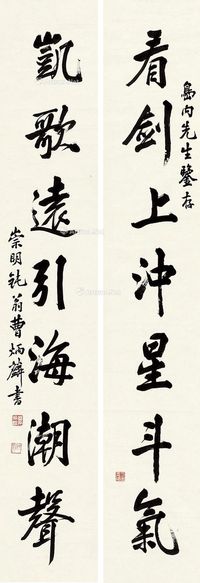 島內先生鑒存
看劍上沖星斗氣
凱歌遠引海潮聲
崇明鈍翁曹炳麟書